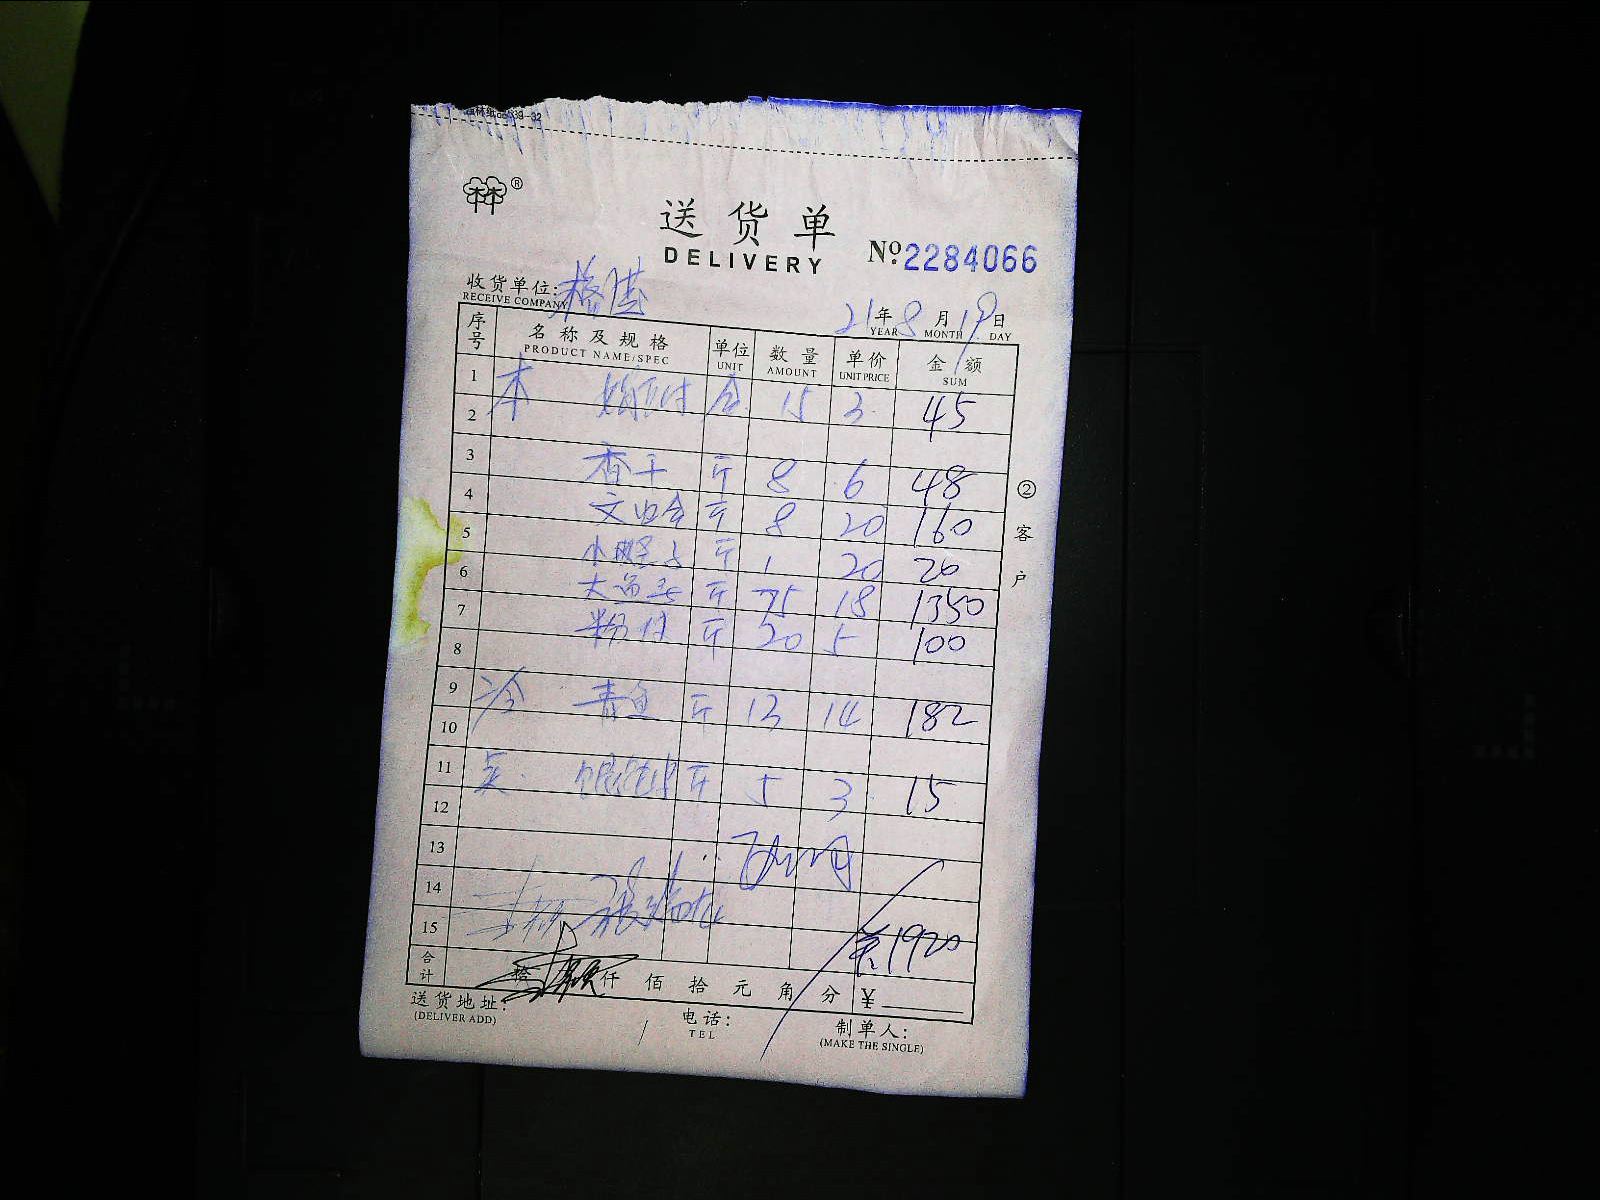 送货单
DELIVERY
№ 2284066
收货单位:
RECEIVE COMPANY
21年8月19日
YEAR MONTH DAY
序号 名称及规格 单位 数量 单价 金额
PRODUCT NAME/SPEC UNIT AMOUNT UNIT PRICE SUM
1 本 盒 15 3 45
2
3 香干 斤 8 6 48
4 文蛤 斤 8 20 160
5 小 斤 1 20 20
6 大鱼头 斤 75 18 1350
7 粉 斤 20 5 100
8
9 冷 青鱼 斤 13 14 182
10
11 斤 5 3 15
12
13
14
15 1920
合计 拾 仟 佰 拾 元 角 分 ¥
送货地址: 电话: 制单人:
(DELIVER ADD) TEL (MAKE THE SINGLE)
②客户